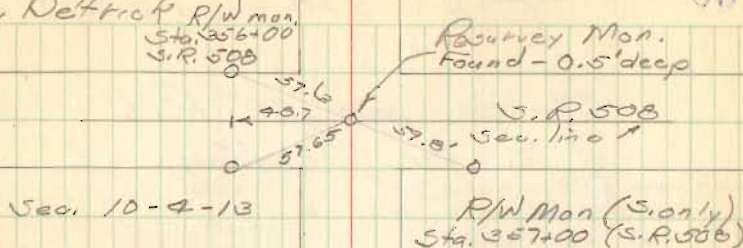 Detrick R/W mon.
Sta. 356+00
S.R. 508
Resurvey Mon.
Found - 0.5' deep
57.6
48.7
57.65
57.8
S.R. 508
Sec. line
Sec. 10-4-13
R/W Mon (S. only)
Sta. 357+00 (S.R. 508)